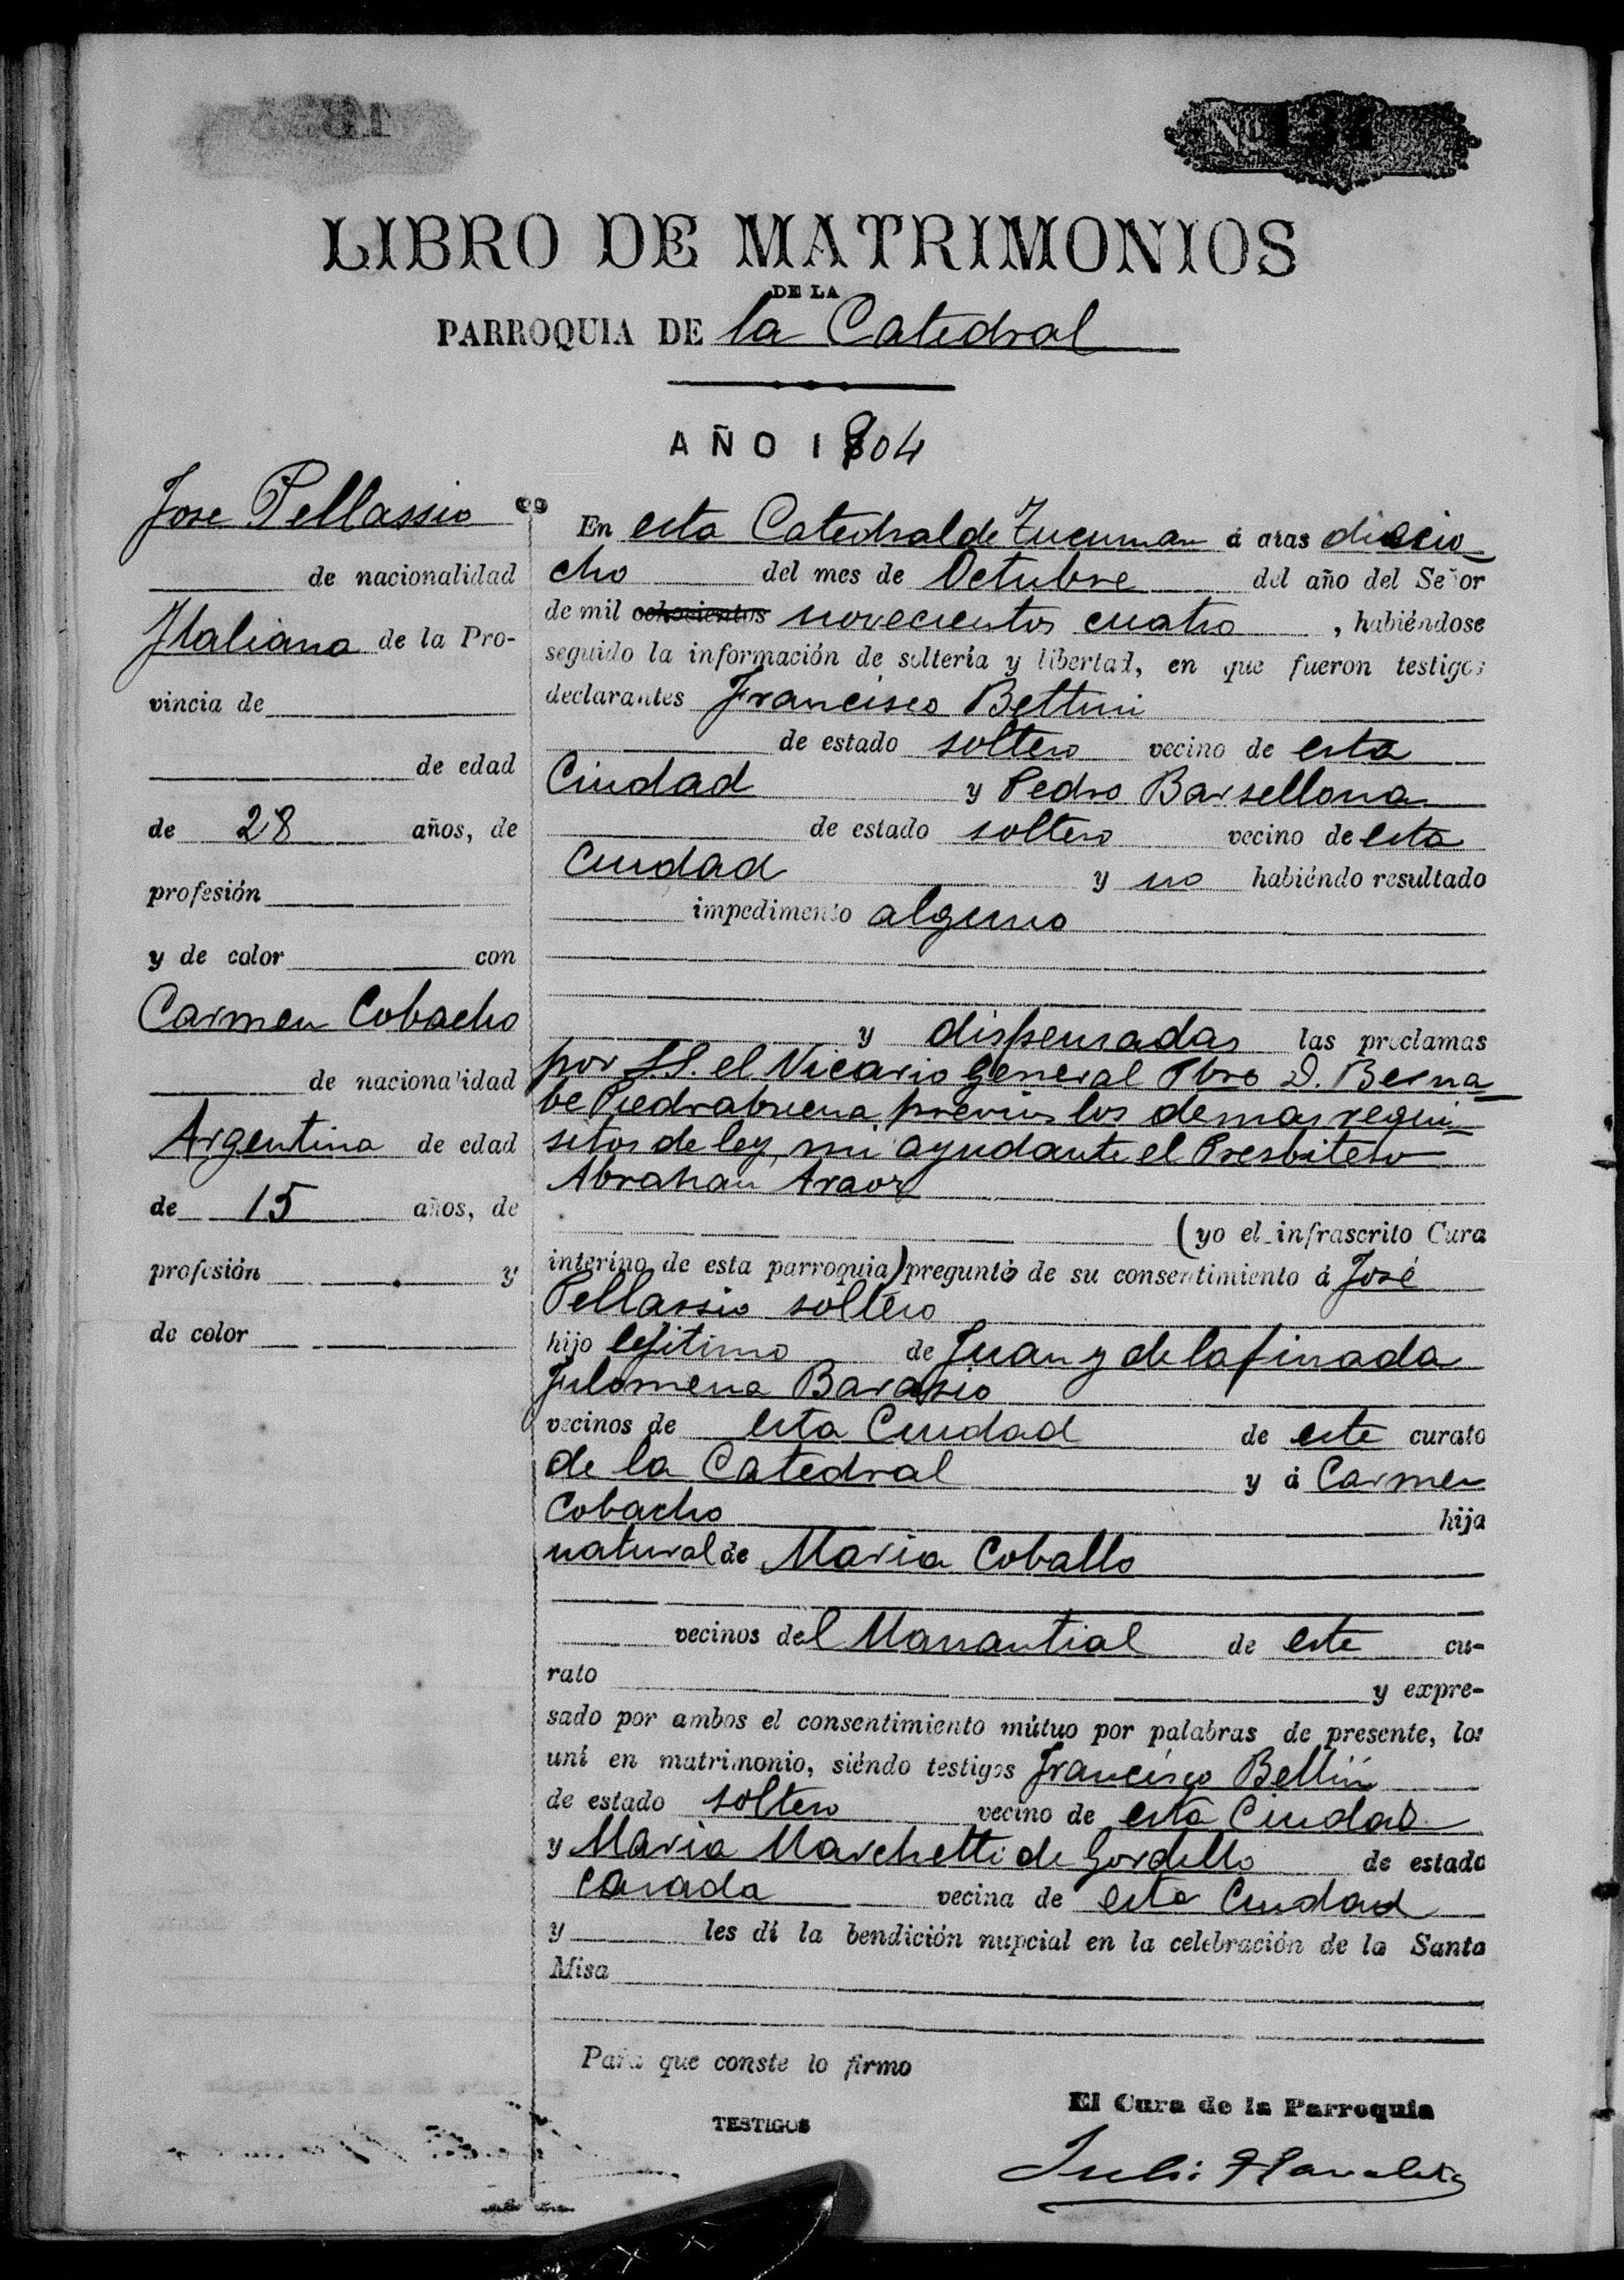 Nº 134
LIBRO DE MATRIMONIOS
DE LA
PARROQUIA DE la Catedral
AÑO 1904
Jose Pellassio
de nacionalidad
Italiana de la Pro-
vincia de
de edad
de 28 años, de
profesión
y de color con
Carmen Cobacho
de nacionalidad
Argentina de edad
de 15 años, de
profesión y
de color
En esta Catedral de Tucuman á dias diecio
cho del mes de Octubre del año del Señor
de mil ochocientos novecientos cuatro , habiéndose
seguido la información de soltería y libertad, en que fueron testigos
declarantes Francisco Bettini
de estado soltero vecino de esta
Ciudad y Pedro Barsellona
de estado soltero vecino de esta
Ciudad y no habiéndo resultado
impedimento alguno
y dispensadas las proclamas
por S.S. el Vicario General Pbro D. Berna
be Piedrabuena previos los demas requi
sitos de ley, mi ayudante el Presbitero
Abrahan Araoz
(yo el infrascrito Cura
interino de esta parroquia) preguntó de su consentimiento á José
Pellassio soltero
hijo lejitimo de Juan y de la finada
Filomena Barasio
vecinos de esta Ciudad de este curato
de la Catedral y á Carmen
Cobacho hija
natural de Maria Coballo
vecinos del Manantial de este cu-
rato y expre-
sado por ambos el consentimiento mútuo por palabras de presente, los
uní en matrimonio, siéndo testigos Francisco Bettini
de estado soltero vecino de esta Ciudad
y Maria Marchetti de Gordillo de estado
casada vecina de esta Ciudad
y les dí la bendición nupcial en la celebración de la Santa
Misa
Para que conste lo firmo
El Cura de la Parroquia
TESTIGOS